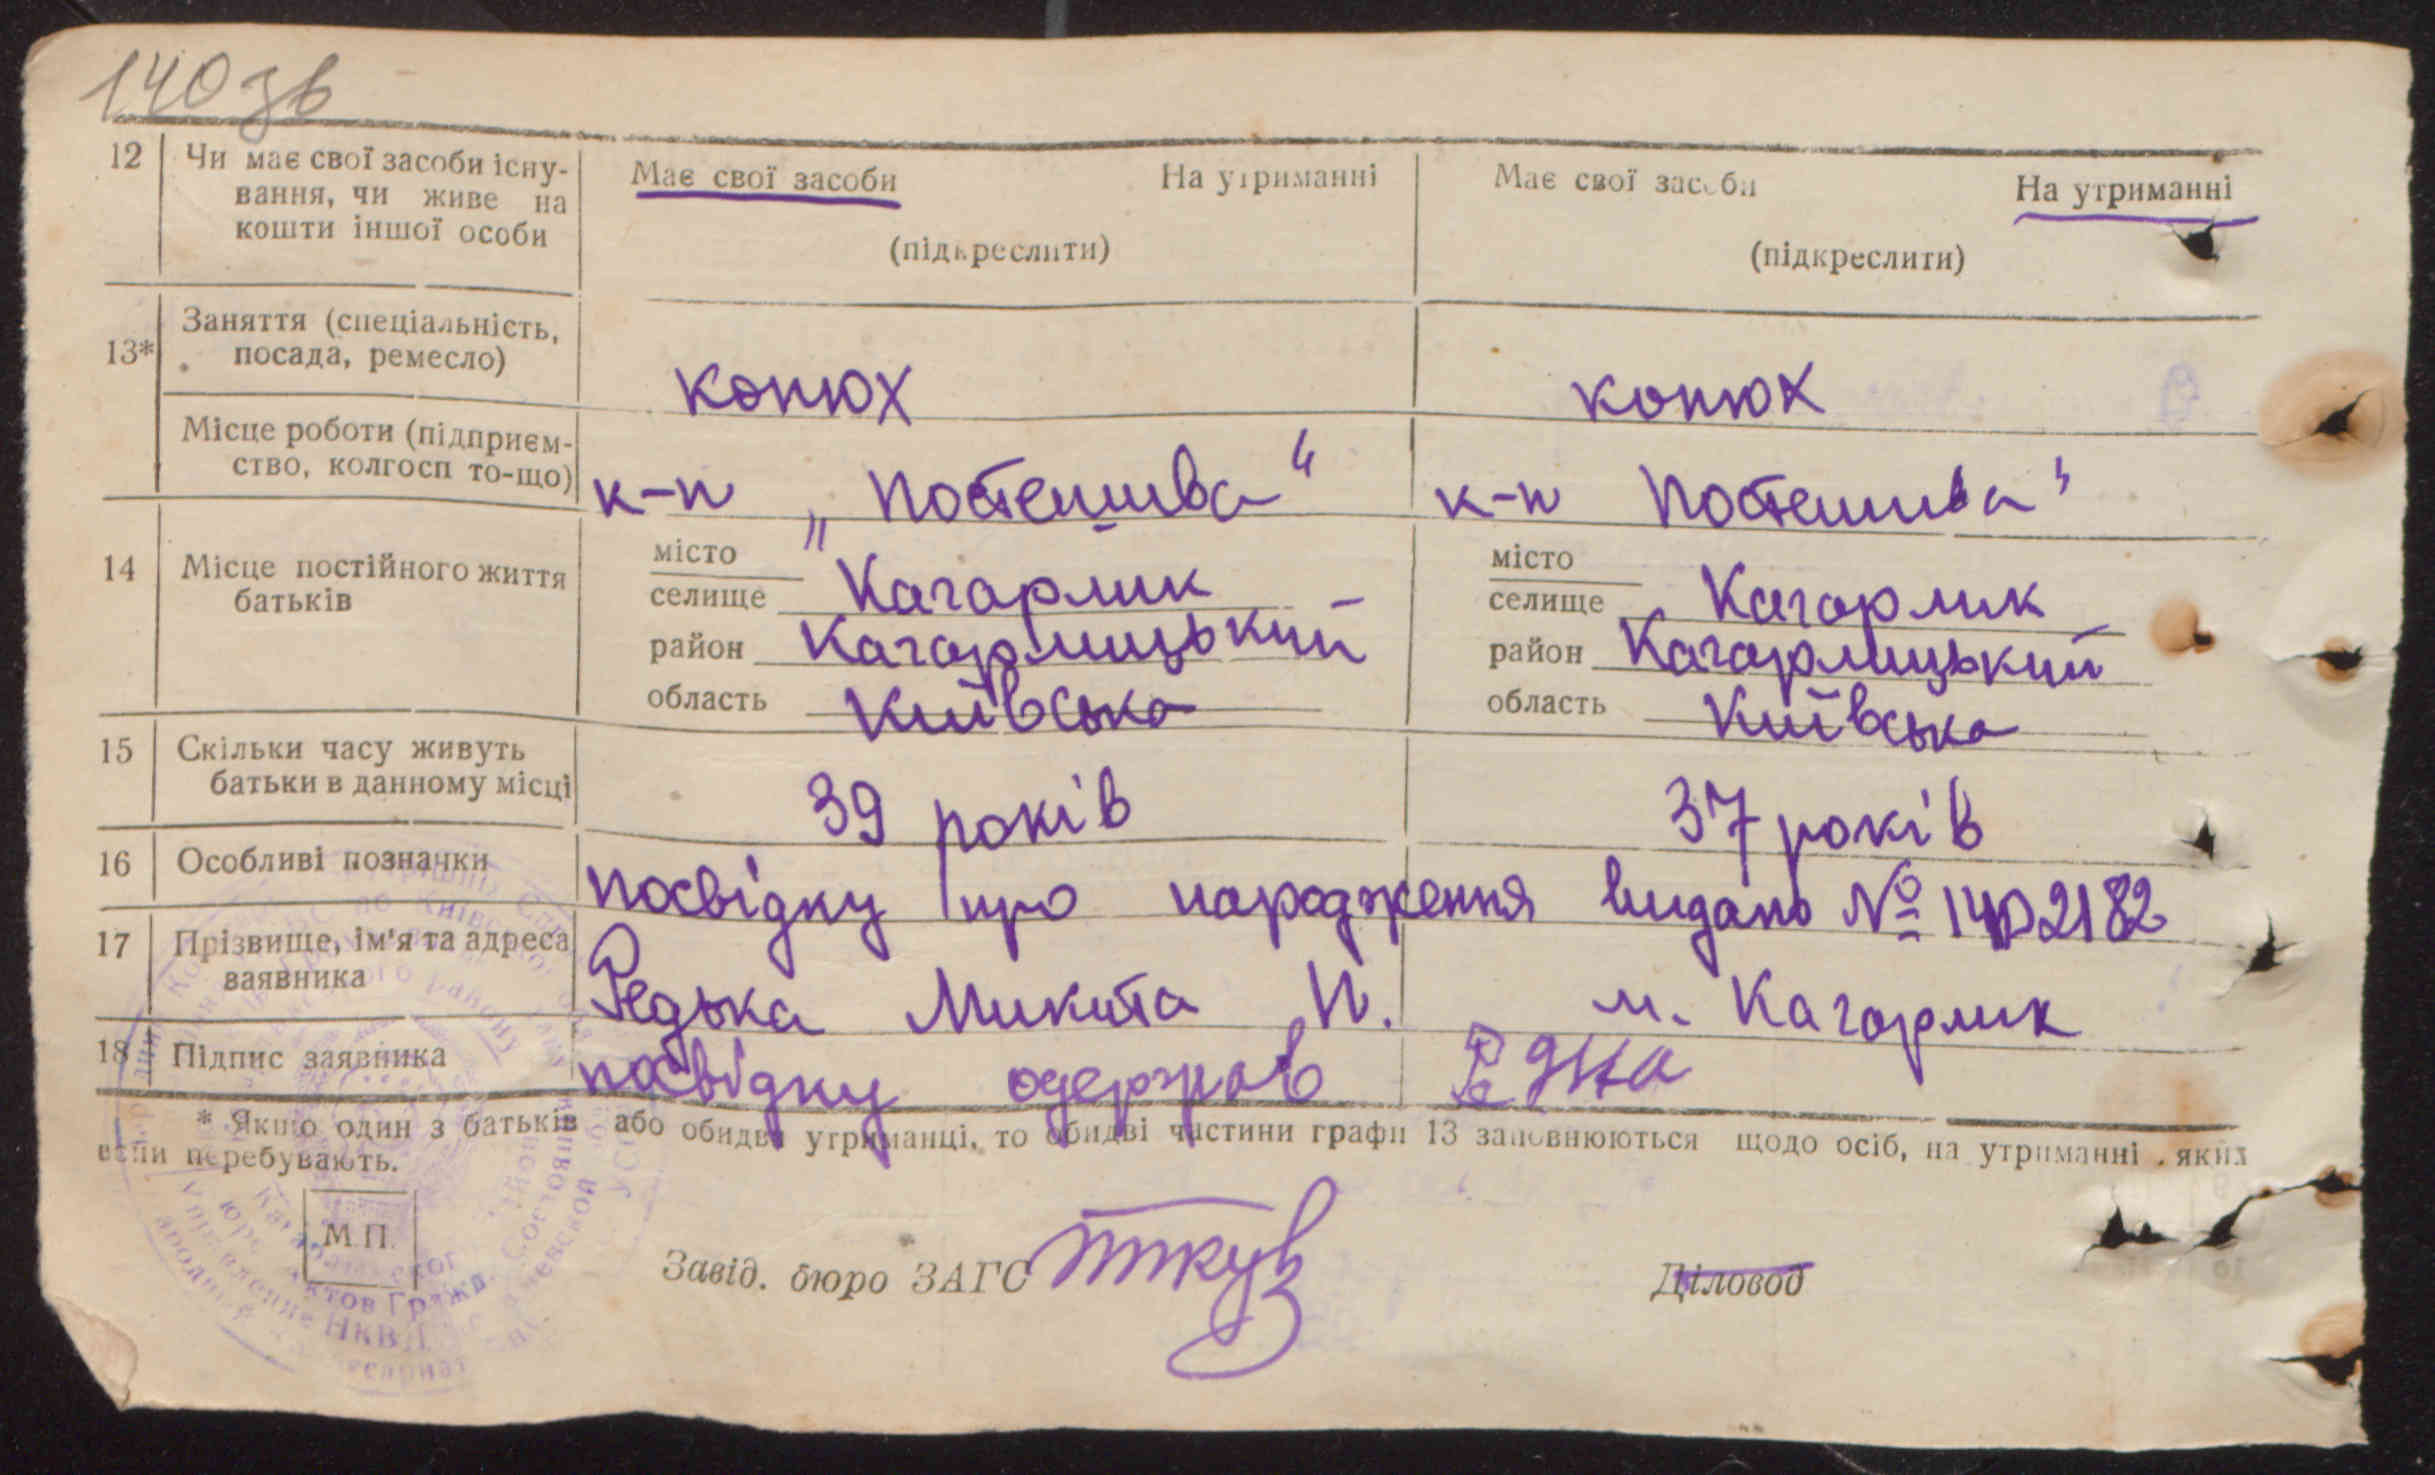 140 зв
12 Чи має свої засоби існу-
вання, чи живе на
кошти іншої особи
Має свої засоби На утриманні Має свої засоби На утриманні
(підкреслити) (підкреслити)
13* Заняття (спеціальність,
посада, ремесло)
конюх конюх
Місце роботи (підприєм-
ство, колгосп то-що)
к-п „Постишива“ к-п Постишива"
14 Місце постійного життя
батьків
місто місто
селище Кагарлик селище Кагарлик
район Кагарлицький район Кагарлицький
область Київська область Київська
15 Скільки часу живуть
батьки в данному місці
39 років 37 років
16 Особливі позначки
посвідку про народження видано № 1402182
17 Прізвище, ім'я та адреса
заявника
Редька Микита П. м. Кагарлик
18 Підпис заявника
посвідку одержав
* Якщо один з батьків або обидва утриманці, то обидві частини графи 13 заповнюються щодо осіб, на утриманні яких
вони перебувають.
М.П.
Завід. бюро ЗАГС Діловод